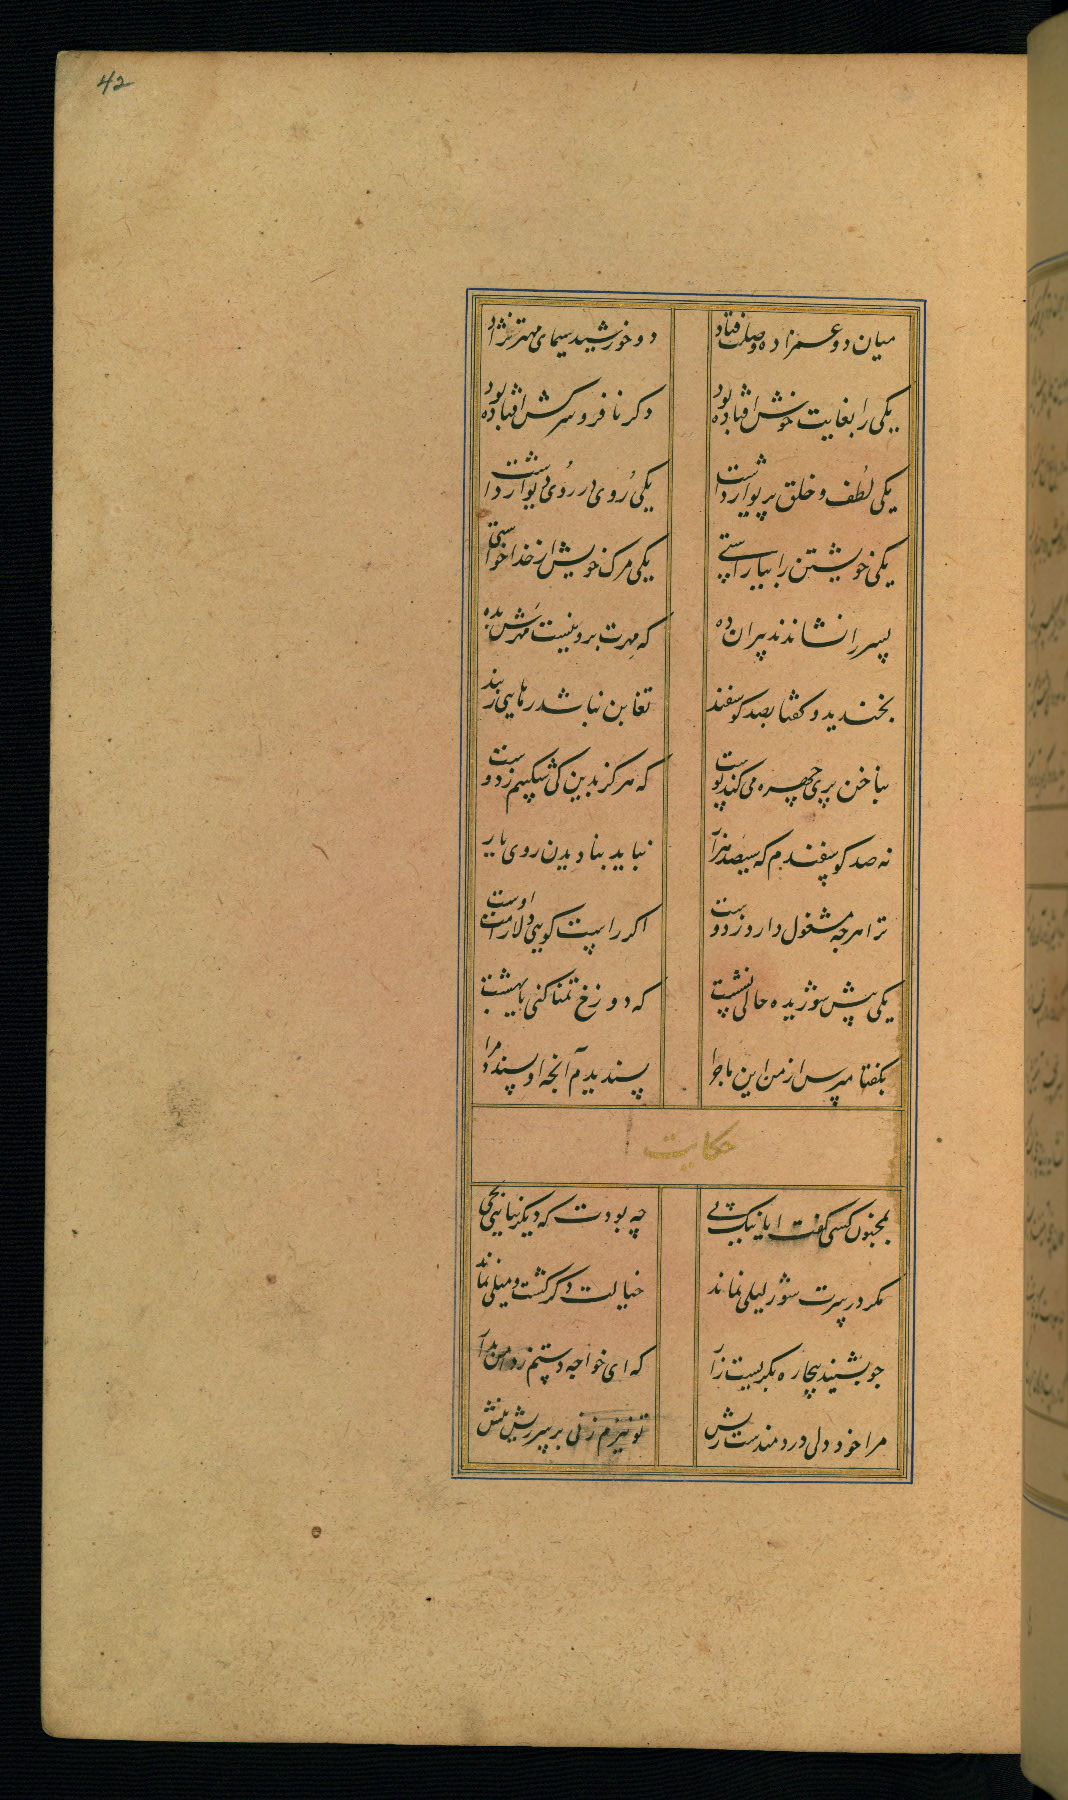 42
میان دو عمزاده وصلت فتاد دو خورشید سیمای مهتر نژاد
یکی را بغایت خوش افتاده بود دکر نافر و سرکش افتاده بود
یکی لطف و خلق پریوار داشت یکی روی در روی دیوار داشت
یکی خویشتن را بیاراستی یکی مرک خویش از خدا خواستی
پسر را نشاندند پیران ده که مهرت برو نیست مهرش بده
بخندید و کفتا بصد کوسفند تغابن نباشد رهایی ز بند
بناخن پری چهره می کند پوست که هرکز بدین کی شکیبم ز دوست
نه صد کوسفندم که سیصد هزار نباید بنادیدن روی یار
ترا هرچه مشغول دارد ز دوست اکر راست کویی دلارامت اوست
یکی پیش شوریده حالی نبشت که دوزخ تمنا کنی یا بهشت
بکفتا مپرس از من این ماجرا پسندیدم آنچه او پسندد مرا
حکایت
بمجنون کسی کفت ای نیک پی چه بودت که دیکر نیایی بحی
مکر در سرت شور لیلی نماند خیالت دکر کشت و میلی نماند
چو بشنید بیچاره بکریست زار که ای خواجه دستم ز دامن بدار
مرا خود دلی دردمندست ریش تو نیزم مزن بر سر ریش نیش